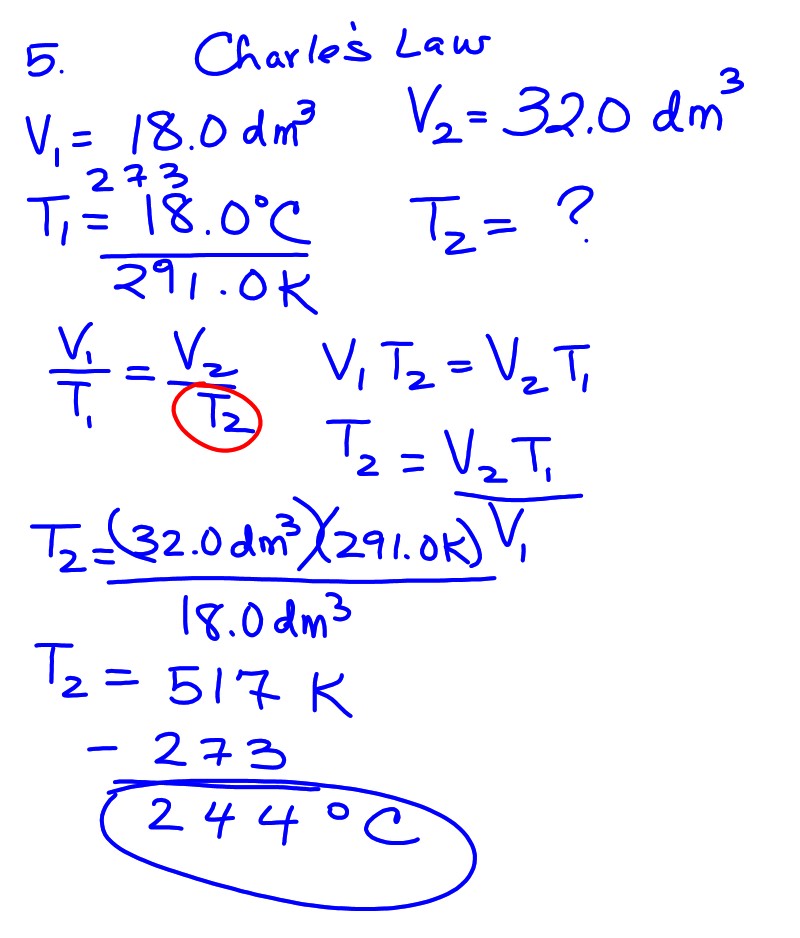 5. Charle's Law
V₁ = 18.0 dm³ V₂ = 32.0 dm³
273
T₁ = 18.0°C T₂ = ?
291.0K
V₁/T₁ = V₂/T₂ V₁T₂ = V₂T₁
T₂ = V₂T₁/V₁
T₂ = (32.0 dm³)(291.0K)
18.0 dm³
T₂ = 517 K
- 273
244°C